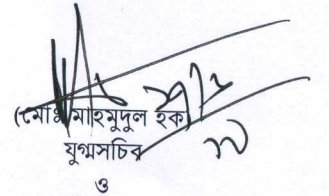 (মোঃ মাহমুদুল হক)
যুগ্মসচিব
ও